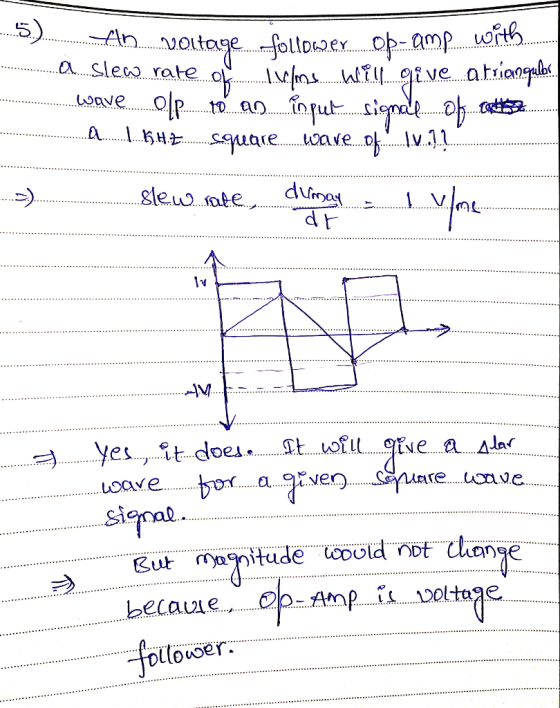 5) An voltage follower op-amp with
a slew rate of 1V/ms will give a triangular
wave o/p to an input signal of
a 1 KHZ square wave of 1V.??
⇒ slew rate, dVmax/dt = 1 V/ms
1V
-1V
⇒ Yes, it does. It will give a Δlar
wave for a given square wave
signal.
⇒ But magnitude would not change
because, op-Amp is voltage
follower.